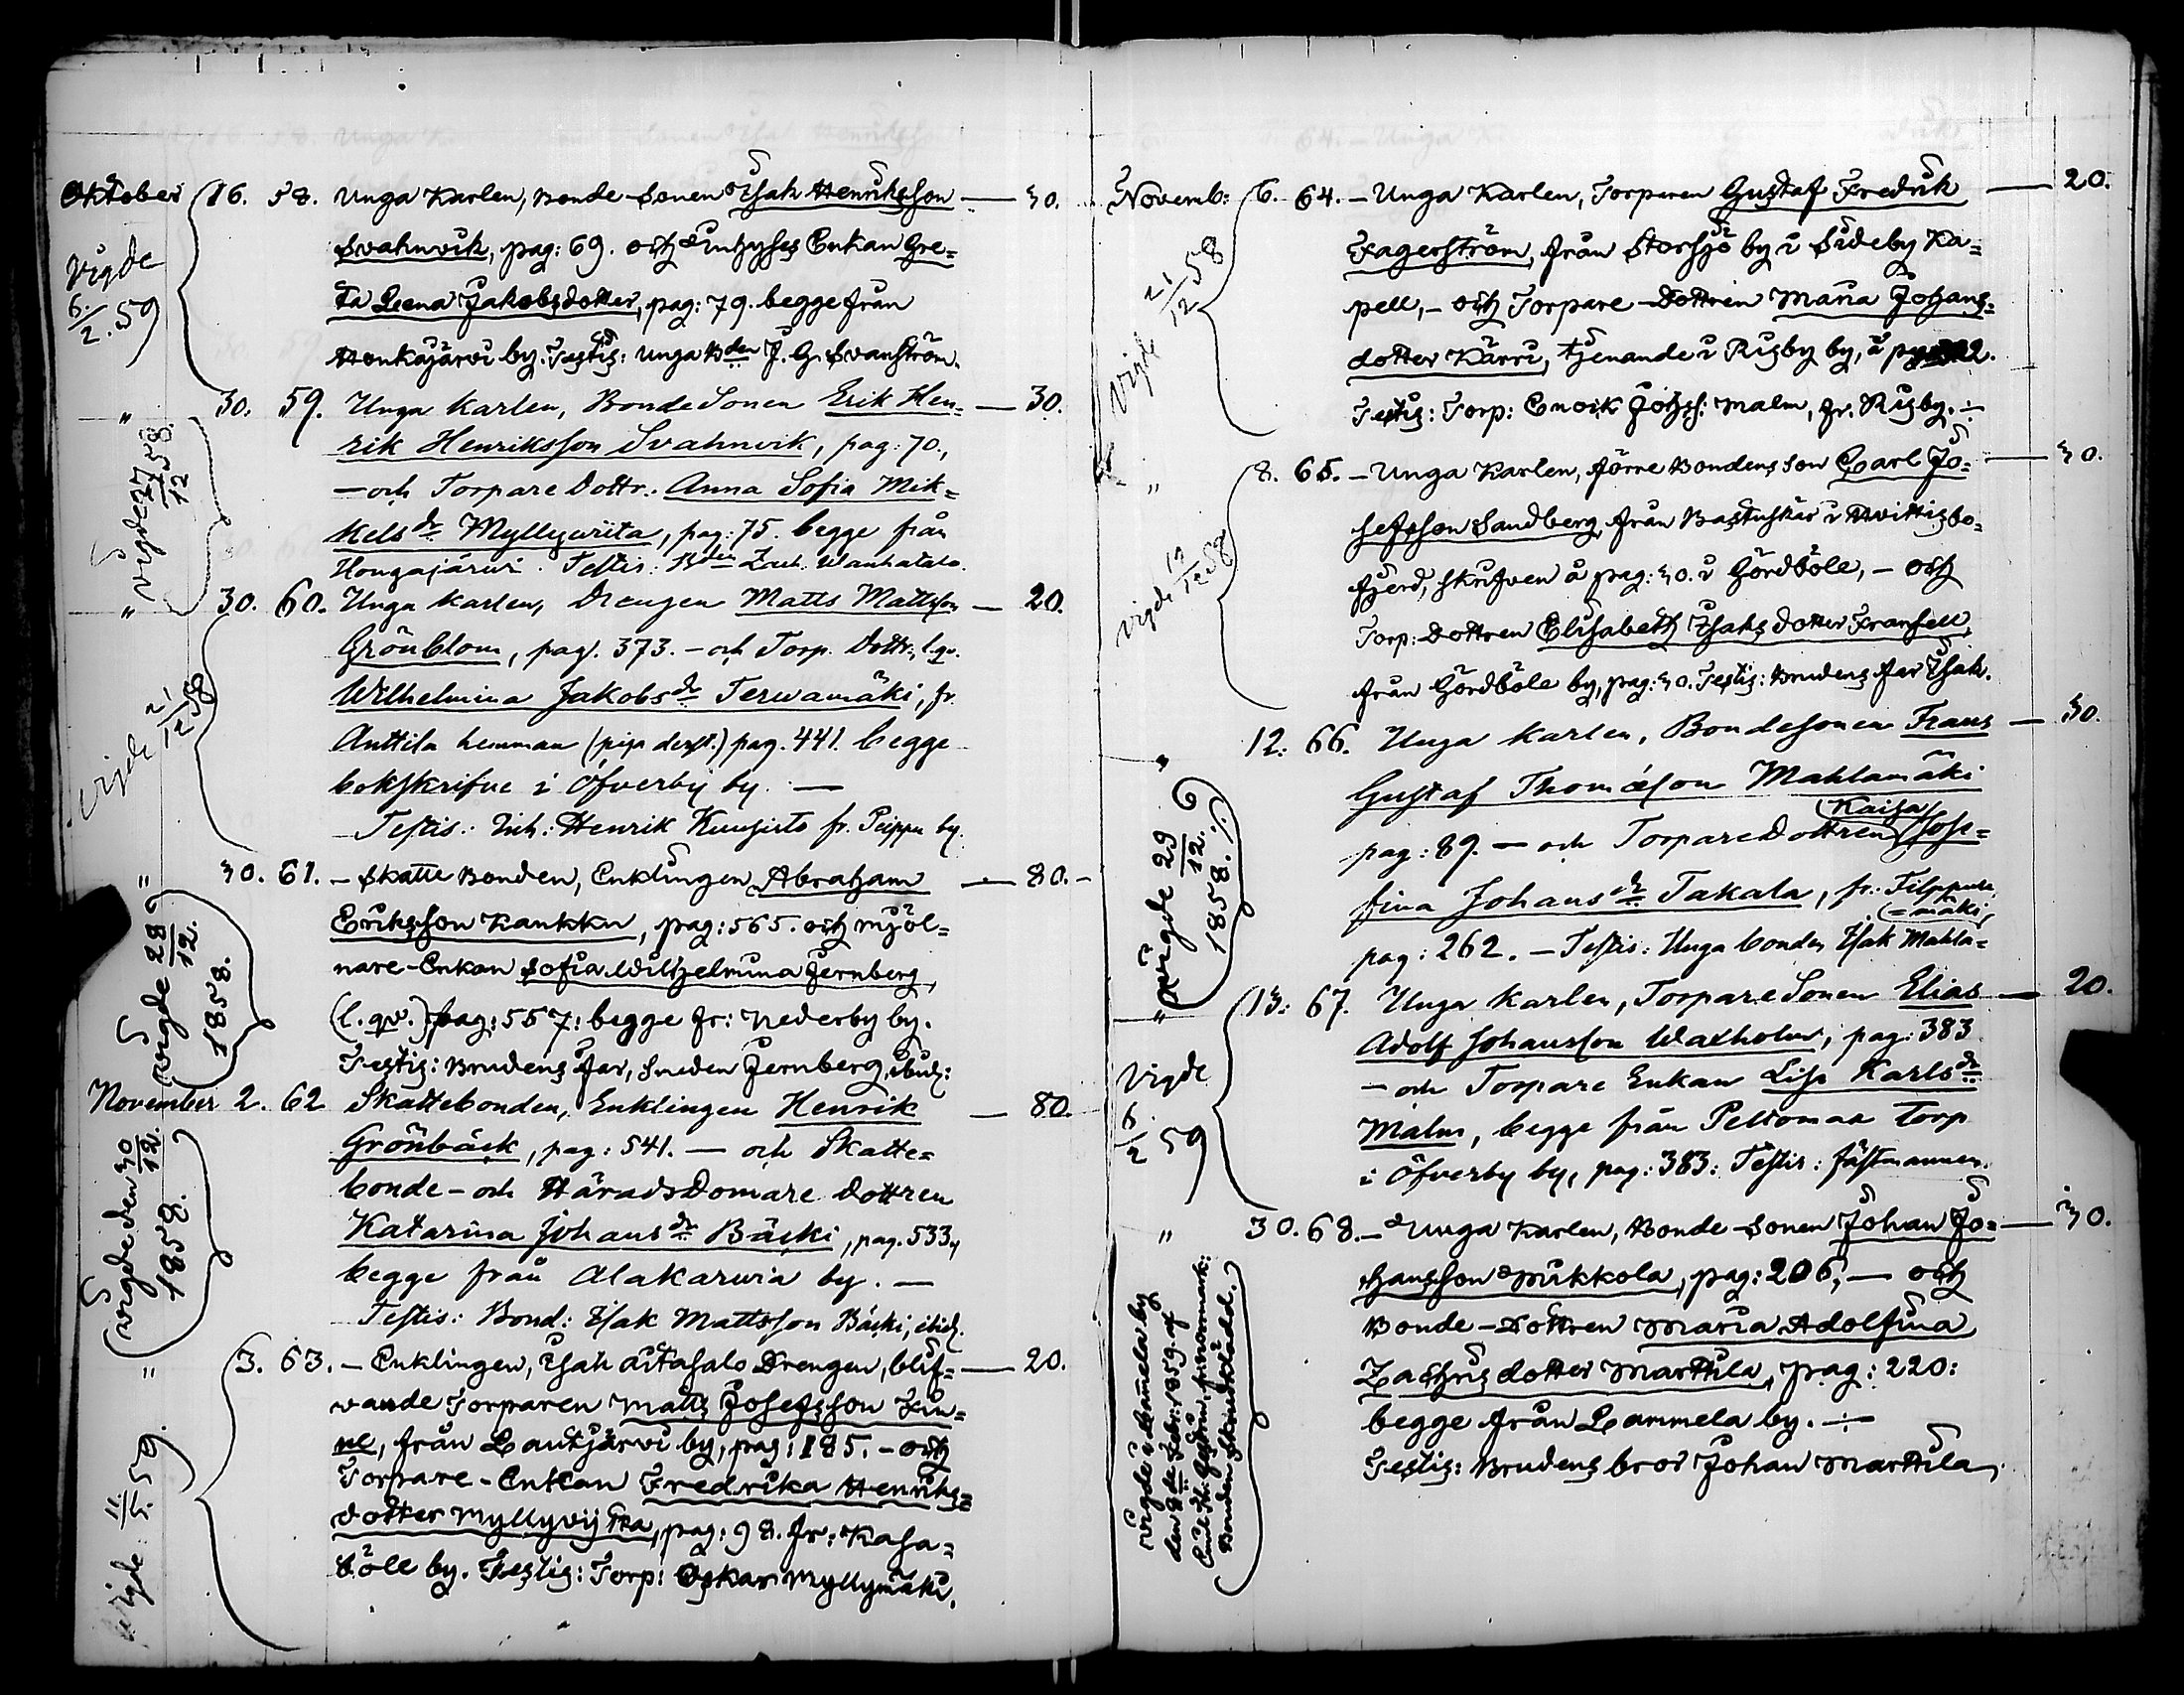 Oktober 16. 58. Unga Karlen, Bonde-Sonen Isak Henriksson — 30.
Svahnvik, pag: 69. och Inhyses Enkan Gre=
ta Leena Jakobsdotter, pag: 79. begge från
Honkajärvi by. Testis: Unga Bden J. G. Svanström.
Vigde
6./2. 59
" 30. 59. Unga Karlen, BondeSonen Erik Hen= — 30.
rik Henriksson Svahnvik, pag: 70.,
— och TorpareDottr. Anna Sofia Mik=
kelsdr Myllywiita, pag: 75. begge från
Hongajärwi. Testis: Bden Zach. Wanhatalo.
vigde 27/12 58.
" 30. 60. Unga Karlen, Drengen Matts Mattsson — 20.
Grönblom, pag. 373. — och Torp. Dottr., l.qv.
Wilhelmina Jakobsdr Terwamäki, fr.
Anttila hemman (piga derst.) pag. 441. begge
bokskrifne i Öfverby by. —
Testis: Inh: Henrik Kuusisto fr. Peippu by.
vigde 21/12 58
" 30. 61. — Skatte Bonden, Enklingen Abraham — 80. -
Eriksson Kaukku, pag: 565. och mjöl=
nare-Enkan Sofia Wilhelmina Jernberg,
(l. qv.) pag: 557: begge fr: Nederby by.
Testis: Brudens far, Smeden Jernberg, ibid:
vigde 28/12. 1858.
November 2. 62 Skattebonden, Enklingen Henrik — 80.
Grönbäck, pag: 541. — och Skatte=
bonde- och HäradsDomare Dottren
Katarina Johansdr Bäcki, pag. 533,
begge från Alakarwia by. —
Testis: Bond: Isak Mattsson Bäcki, ibid.
vigde den 30/12. 1858.
" 3. 63. — Enklingen, Isak Aitasalo Drengen, blif= — 20.
vande Torparen Matts Josefsson Kin=
ne, från Lautjärvi by, pag: 185. - och
Torpare-Enkan Fredrika Henriks=
dotter Myllyvijta, pag: 98. fr: Kasa=
böle by. Testis: Torp: Oskar Myllymäki.
Vigde: 59.
Novemb: 6. 64. — Unga Karlen, Torparen Gustaf Fredrik — 20.
Fagerström, från Storsjö by i Sideby Ka=
pell, — och Torpare-Dottren Maria Johans=
dotter Kärri, tjenande i Risby by, å
Testis: Torp: Enoik Johss: Malm, fr. Risby. ÷
vigde 21/12 58
" 8. 65. — Unga Karlen, förre Bondens son Carl Jo= — 30.
sefsson Sandberg, från Bastuskär i Hvittisbo=
fjerd, skrifven å pag: 30. i Gördböle, — och
Torp: Dottren Elisabeth Isaks dotter Fransell,
från Gördböle by, pag: 30. Testis: Brudens far Isak.
vigde 12 58
" 12: 66. Unga Karlen, Bondesonen Frans — 30.
Gustaf Thomasson Mahlamäki
pag: 89. — och TorpareDottren (Kaisa) Jose=
fina Johansdr Takala, fr. Filppula,
pag: 262. — Testis: Unga bonden Isak Mahla=
(=mäki,
vigde 29/12. 1858.
" 13: 67. Unga Karlen, TorpareSonen Elias — 20.
Adolf Johansson Waxholm, pag: 383
— och Torpare Enkan Lisa Karlsdr
Malm, begge från Peltomaa torp
i Öfverby by, pag: 383: Testis: fästmannen.
Vigde
6/2 59
" 30. 68. — Unga Karlen, Bonde-Sonen Johan Jo= — 30.
hansson Mikkola, pag: 206; — och
Bonde-Dottren Maria Adolfina
Zachris dotter Marttila, pag: 220:
begge från Lammela by. ÷
Testis: Brudens bror Johan Marttila,
vigde i Lammela by
den 8de Febr: 1859. af